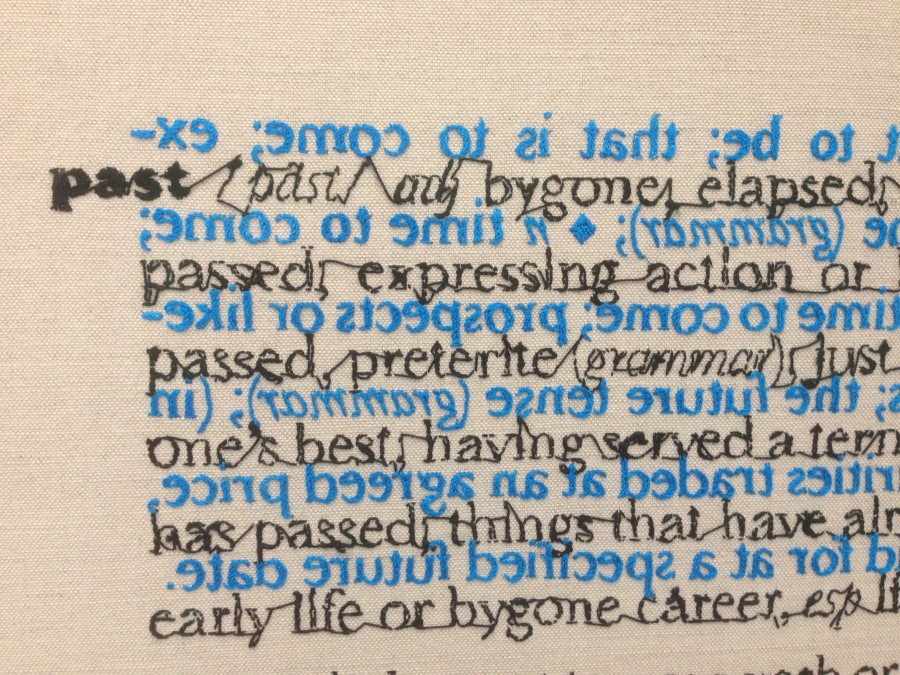 to be; that is to come; ex-
past /päst/ adj bygone; elapsed;
(grammar); ◆ n time to come;
passed; expressing action or
time to come; prospects or like-
passed, preterite (grammar); just
the future tense (grammar); (in
one's best; having served a term
rities traded at an agreed price,
has passed; things that have alr
d for at a specified future date.
early life or bygone career, esp